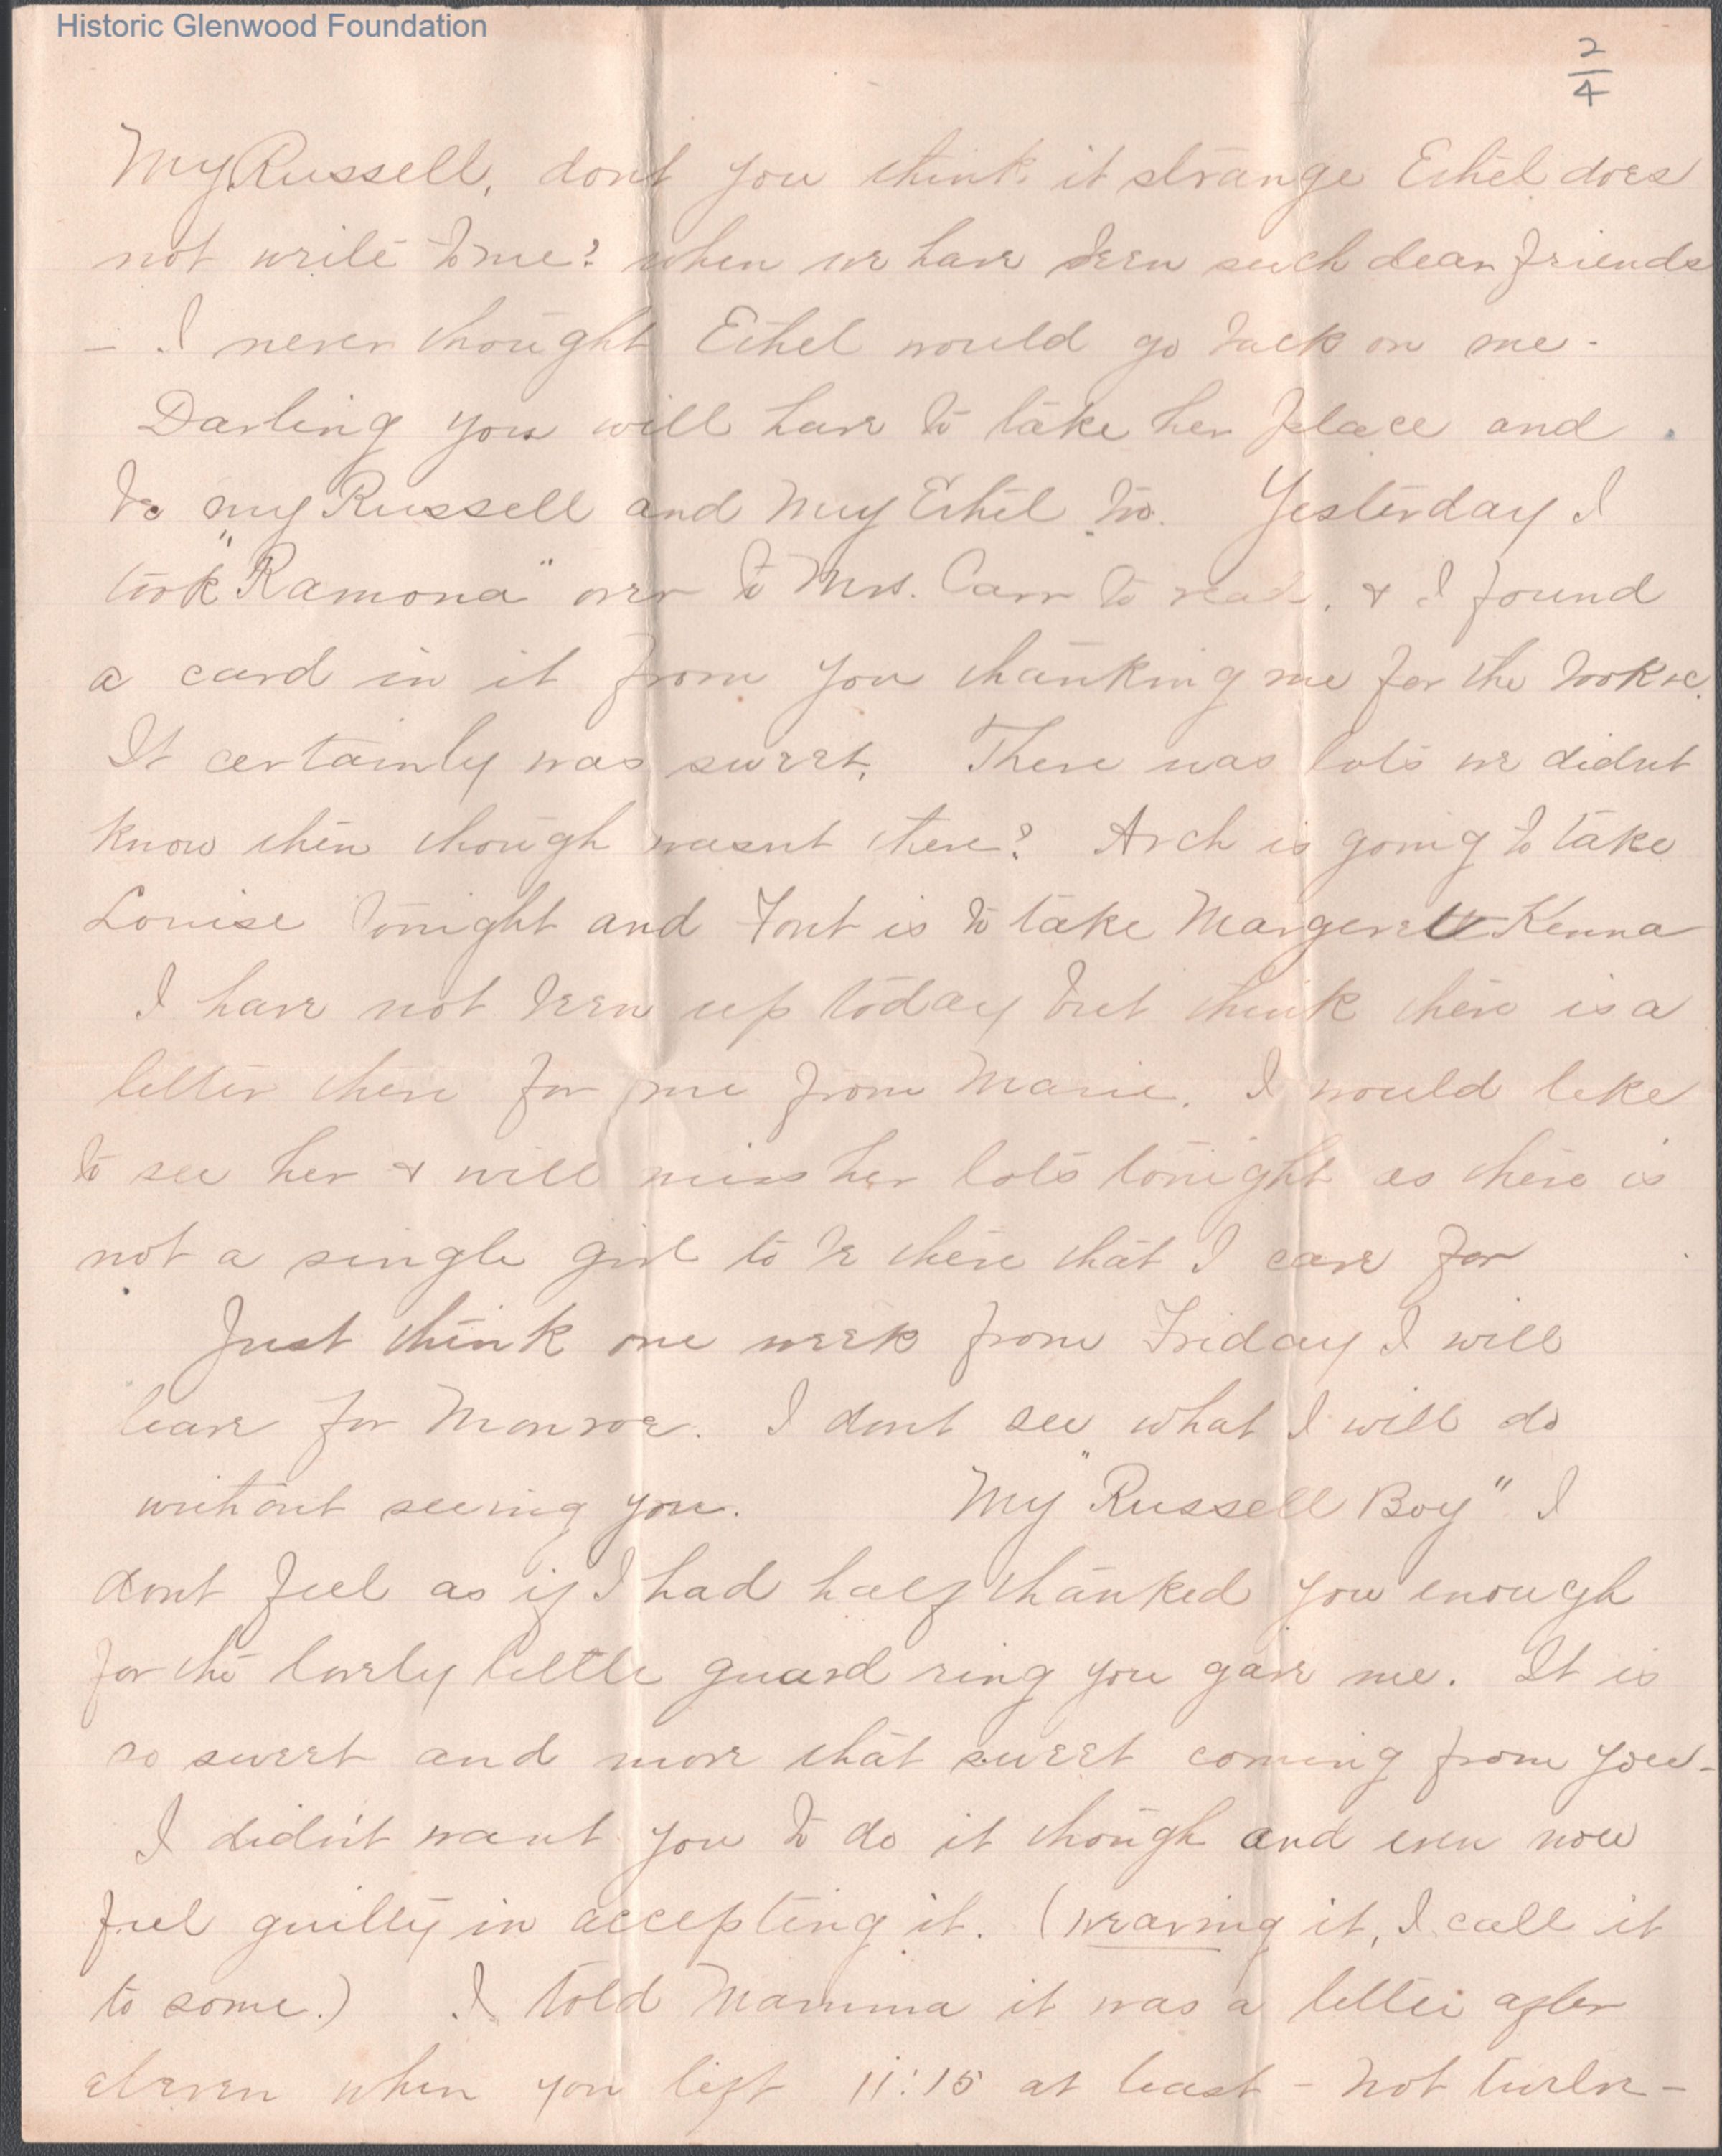 Historic Glenwood Foundation
2/4
My Russell, dont you think it strange Ethel does
not write to me? when we have been such dear friends
- I never thought Ethel would go back on me.
Darling you will have to take her place and
be my Russell and my Ethel too. Yesterday I
took "Ramona" over to Mrs. Carr to read, & I found
a card in it from you thanking me for the book &c.
It certainly was sweet. There was lots we didnt
know then though wasnt there? Arch is going to take
Louise tonight and Font is to take Margerett Kenna
I have not been up today but think there is a
letter there for me from Marie. I would like
to see her & will miss her lots tonight as there is
not a single girl to be there that I care for
Just think one week from Friday I will
leave for Monroe. I dont see what I will do
without seeing you. My "Russell Boy" I
dont feel as if I had half thanked you enough
for the lovely little guard ring you gave me. It is
so sweet and more that sweet coming from you -
I didn't want you to do it though and even now
feel guilty in accepting it. (wearing it, I call it
to some.) I told Mamma it was a little after
eleven when you left 11:15 at least - not twelve -